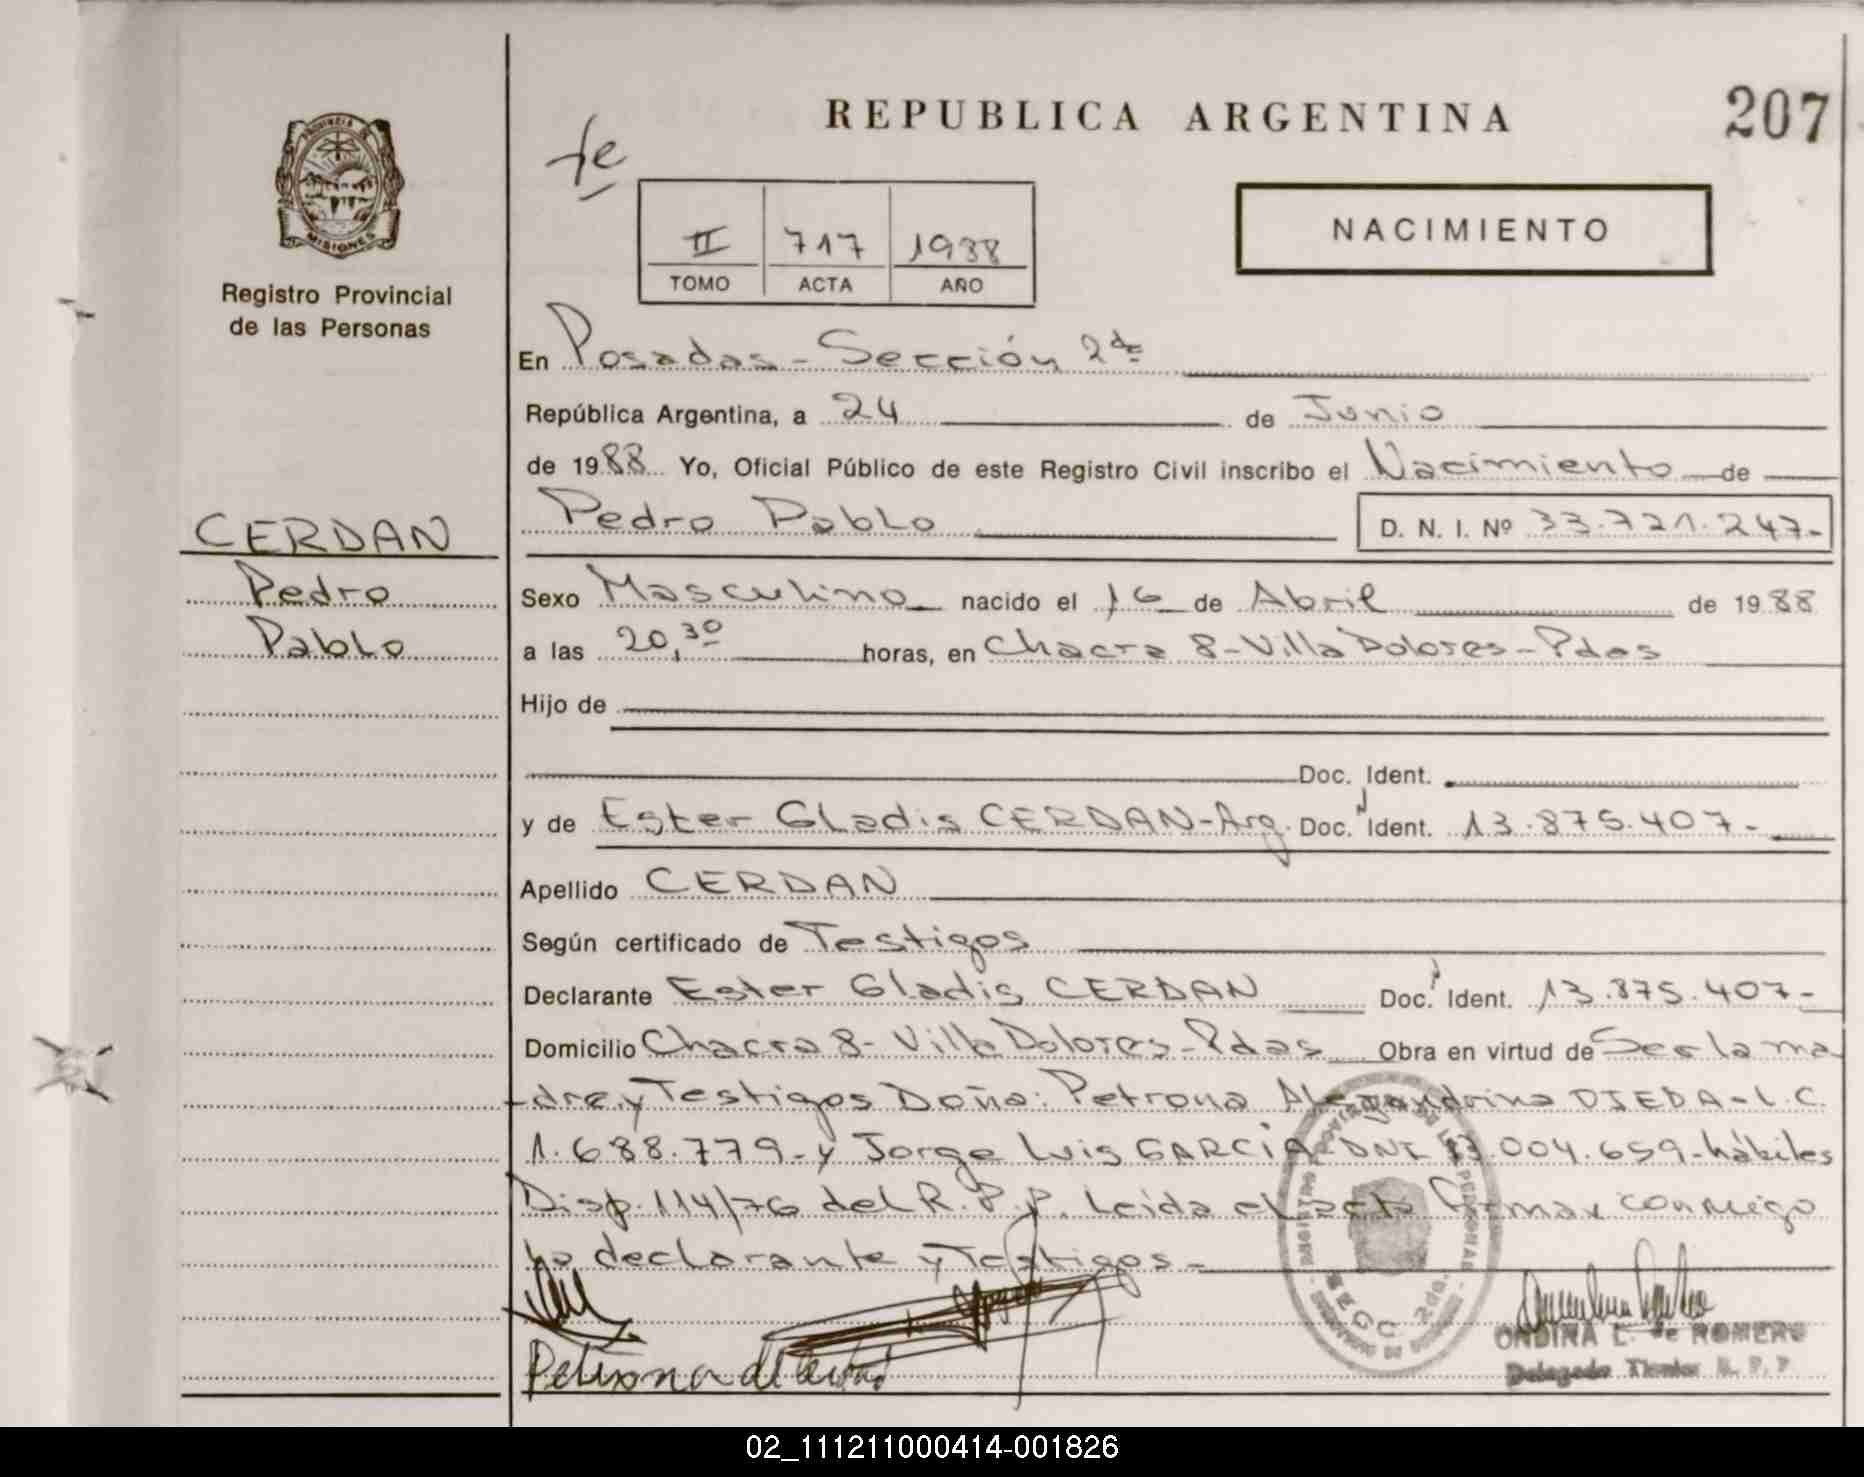 REPUBLICA ARGENTINA
207
fe
NACIMIENTO
II 717 1988
TOMO ACTA AÑO
PROVINCIA DE
MISIONES
Registro Provincial
de las Personas
CERDAN
Pedro
Pablo
En Posadas - Sección 2da
República Argentina, a 24 de Junio
de 1988 Yo, Oficial Público de este Registro Civil inscribo el Nacimiento de
Pedro Pablo D. N. I. Nº 33.721.247-
Sexo Masculino nacido el 16 de Abril de 1988
a las 20,30 horas, en Chacra 8 - Villa Dolores - Pdas
Hijo de
Doc. Ident.
y de Ester Gladis CERDAN - Arg. Doc. Ident. 13.875.407-
Apellido CERDAN
Según certificado de Testigos
Declarante Ester Gladis CERDAN Doc. Ident. 13.875.407-
Domicilio Chacra 8 - Villa Dolores - Pdas Obra en virtud de Ser la ma
-dre, y Testigos Doña: Petrona Alejandrina OJEDA - L.C.
1.688.779 - y Jorge Luis GARCÍA - DNI 13.004.659 - hábiles
Disp. 114/76 del R.P.P. Leída el acta firman conmigo
la declarante y Testigos -
Petrona
SECC 2da.
ONDINA L. de ROMERO
Delegado Titular R. P. P.
02_111211000414-001826